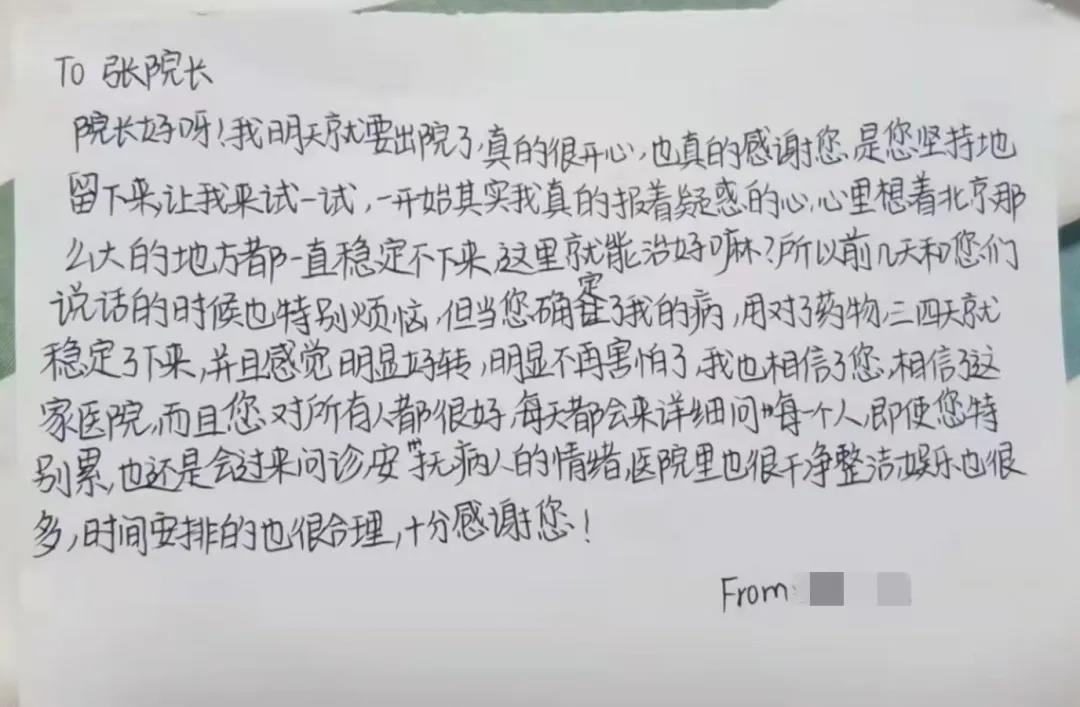 To 张院长
院长好呀！我明天就要出院了，真的很开心，也真的感谢您，是您坚持地
留下来，让我来试一试，一开始其实我真的报着疑惑的心，心里想着北京那
么大的地方都一直稳定不下来，这里就能治好嘛？所以前几天和您们
说话的时候也特别烦恼，但当您确定了我的病，用对了药物，三四天就
稳定了下来，并且感觉明显好转，明显不再害怕了，我也相信了您，相信了这
家医院，而且您对所有人都很好，每天都会来详细问每一个人，即使您特
别累，也还是会过来问诊，安抚病人的情绪，医院里也很干净整洁，娱乐也很
多，时间安排的也很合理，十分感谢您！
From: